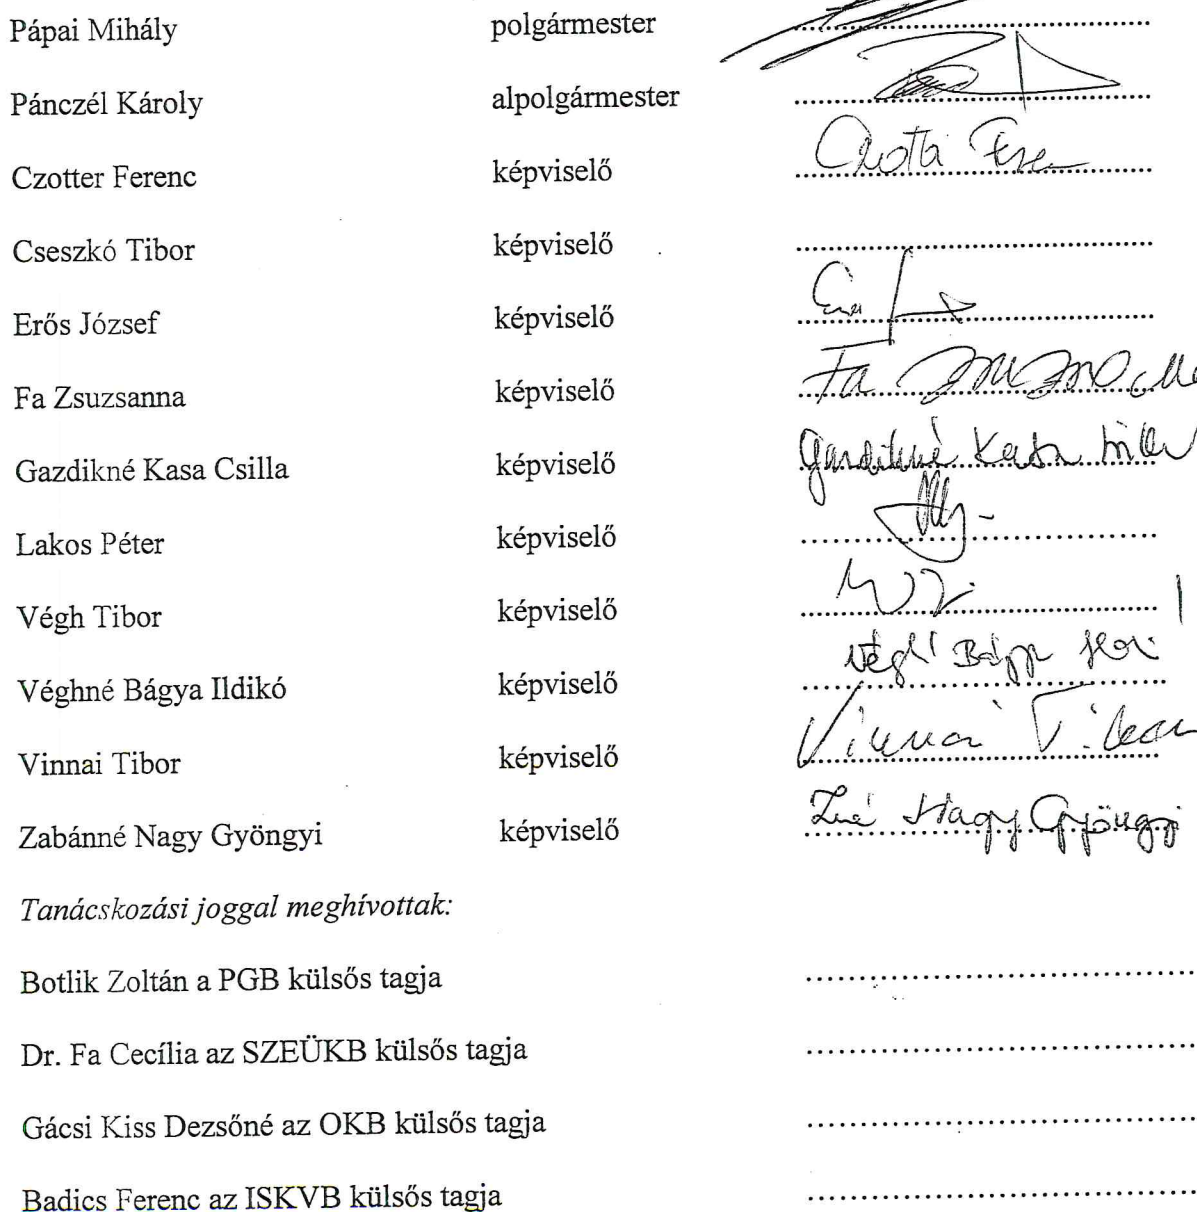 Pápai Mihály polgármester ........................................
Pánczél Károly alpolgármester ........................................
Czotter Ferenc képviselő ........................................
Cseszkó Tibor képviselő ........................................
Erős József képviselő ........................................
Fa Zsuzsanna képviselő Fa
Gazdikné Kasa Csilla képviselő Gazdikné Kasa
Lakos Péter képviselő ........................................
Végh Tibor képviselő ........................................
Véghné Bágya Ildikó képviselő ........................................
Vinnai Tibor képviselő Vinnai Tibor
Zabánné Nagy Gyöngyi képviselő Zné Nagy Gyöngyi
Tanácskozási joggal meghívottak:
Botlik Zoltán a PGB külsős tagja ........................................
Dr. Fa Cecília az SZEÜKB külsős tagja ........................................
Gácsi Kiss Dezsőné az OKB külsős tagja ........................................
Badics Ferenc az ISKVB külsős tagja ........................................